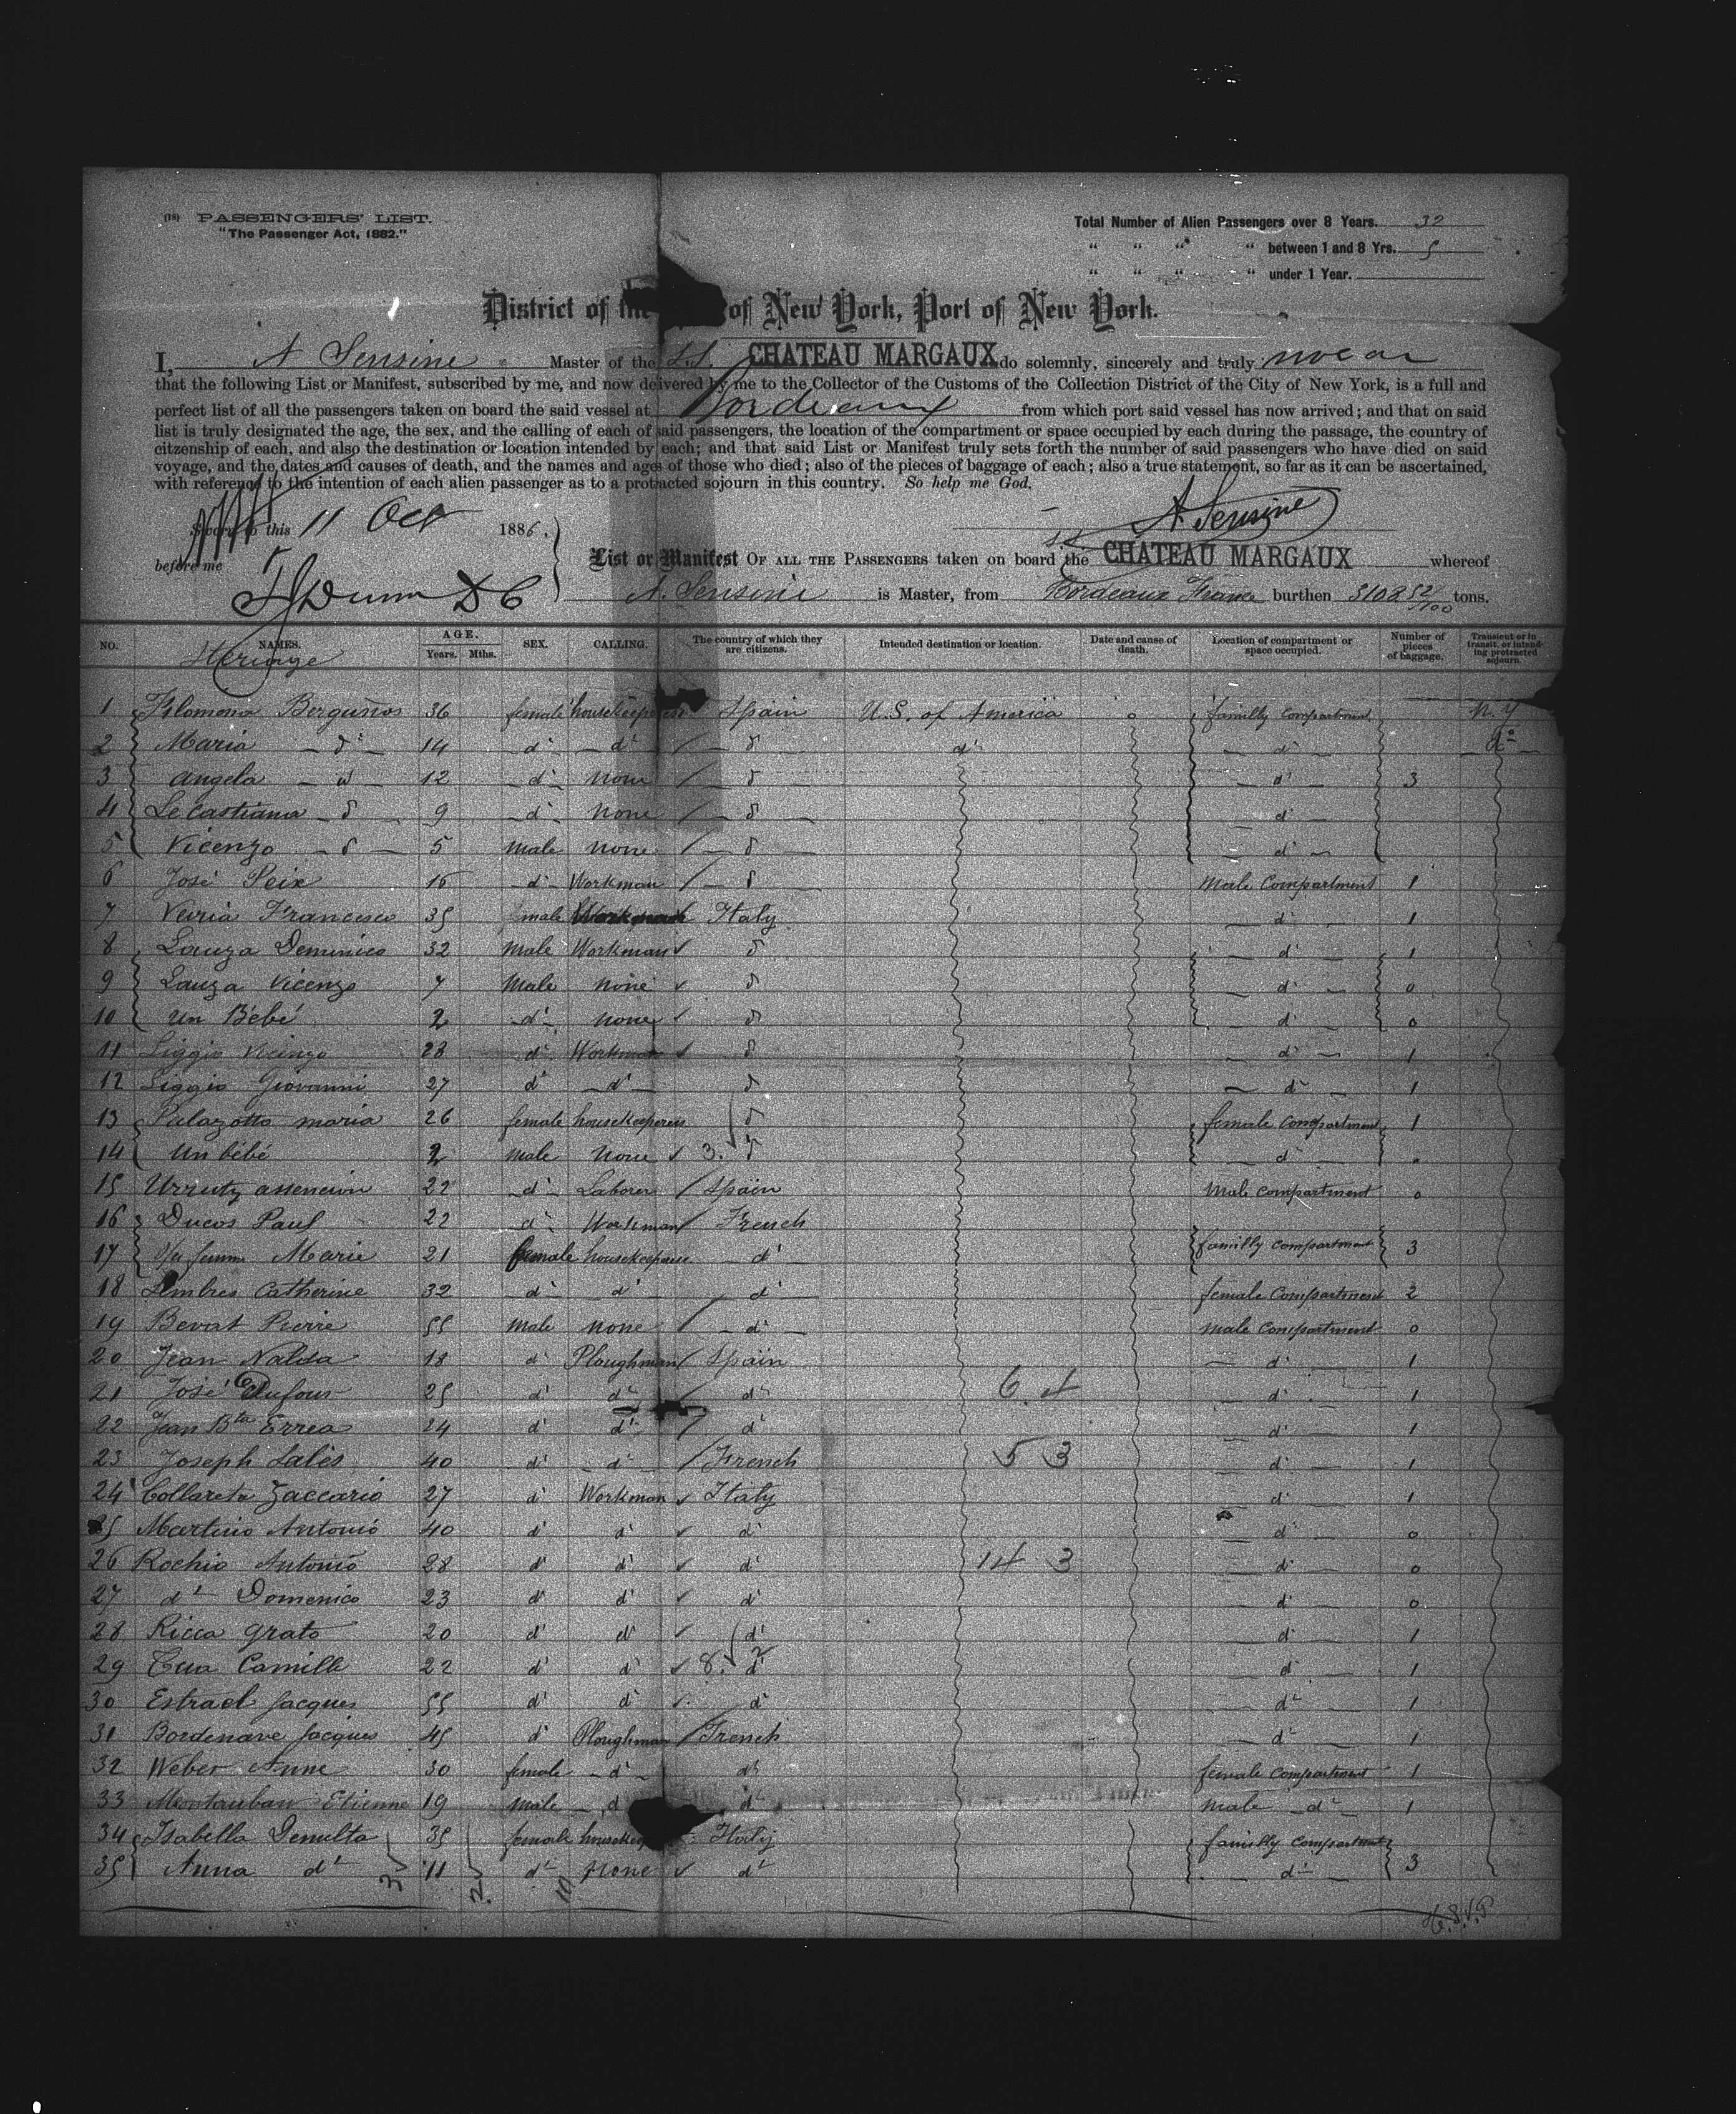 (18) PASSENGERS' LIST.
"The Passenger Act, 1882."
Total Number of Alien Passengers over 8 Years. 32
" " " " between 1 and 8 Yrs. 5
" " " " under 1 Year.
District of the of New York, Port of New York.
I, A Sensine Master of the S.S. CHATEAU MARGAUX do solemnly, sincerely and truly swear
that the following List or Manifest, subscribed by me, and now delivered by me to the Collector of the Customs of the Collection District of the City of New York, is a full and
perfect list of all the passengers taken on board the said vessel at Bordeaux from which port said vessel has now arrived; and that on said
list is truly designated the age, the sex, and the calling of each of said passengers, the location of the compartment or space occupied by each during the passage, the country of
citzenship of each, and also the destination or location intended by each; and that said List or Manifest truly sets forth the number of said passengers who have died on said
voyage, and the dates and causes of death, and the names and ages of those who died; also of the pieces of baggage of each; also a true statement, so far as it can be ascertained,
with reference to the intention of each alien passenger as to a protracted sojourn in this country. So help me God.
Sworn to this 11 Oct 1886.
A Sensine
before me
List or Manifest OF ALL THE PASSENGERS taken on board the S.S. CHATEAU MARGAUX whereof
Dunn D C
A. Sensine is Master, from Bordeaux France burthen 5108 52/100 tons.
NO. NAMES. AGE. Years. Mths. SEX. CALLING. The country of which they are citizens. Intended destination or location. Date and cause of death. Location of compartment or space occupied. Number of pieces of baggage. Transient or in transit, or intending protracted sojourn.
Steerage
1 Filomena Berguños 36 female housekeeperess Spain U.S. of America o familly compartment N.Y
2 Maria d° 14 d° d° d° d° d° d°
3 Angela d° 12 d° none d° d° 3
4 Le Castiana d° 9 d° none d° d°
5 Vicenzo d° 5 male none d° d°
6 José Peix 16 d° Workman d° Male Compartment 1
7 Francesco 35 male Workman Italy d° 1
8 Lauza Deminico 32 male Workman d° d° 1
9 Lauza Vicenzo 7 Male none d° d° 0
10 un Bébé 2 d° none d° d° 0
11 Liggio Vicinzo 28 d° Workman d° d° 1
12 Liggio Giovanni 27 d° d° d° d° 1
13 Palazotto maria 26 female housekeeperess d° female compartment 1
14 Un bébé 2 male none 3. d° d°
15 Urruty assencion 22 d° Laborer Spain Male compartment 0
16 Ducos Paul 22 d° Workman French
17 S/a femme Marie 21 female housekeeperess d° familly compartment 3
18 Catherine 32 d° d° d° female Compartment 2
19 Pierre 55 male none d° male compartment 0
20 Jean Nalda 18 d° Ploughman Spain d° 1
21 José Dufour 25 d° d° d° 6 d° 1
22 Jean Bta Errea 24 d° d° d° d° 1
23 Joseph Salés 40 d° d° French 5 3 d° 1
24 Collareta Zaccario 27 d° Workman Italy d° 1
25 Martino Antonio 40 d° d° d° d° 0
26 Rochio Antonio 28 d° d° d° 14 3 d° 0
27 d° Domenico 23 d° d° d° d° 0
28 Ricca Grato 20 d° d° d° d° 1
29 Camille 22 d° d° 8. d° d° 1
30 Estrael Jacques 55 d° d° d° d° 1
31 Bordenave Jacques 45 d° Ploughman French d° 1
32 Weber Anne 30 female d° d° female compartment 1
33 Montauban Etienne 19 male d° d° male d° 1
34 Isabella Denulta 35 female Italy familly compartment
35 Anna d° 11 d° none d° d° 3
3 2 10